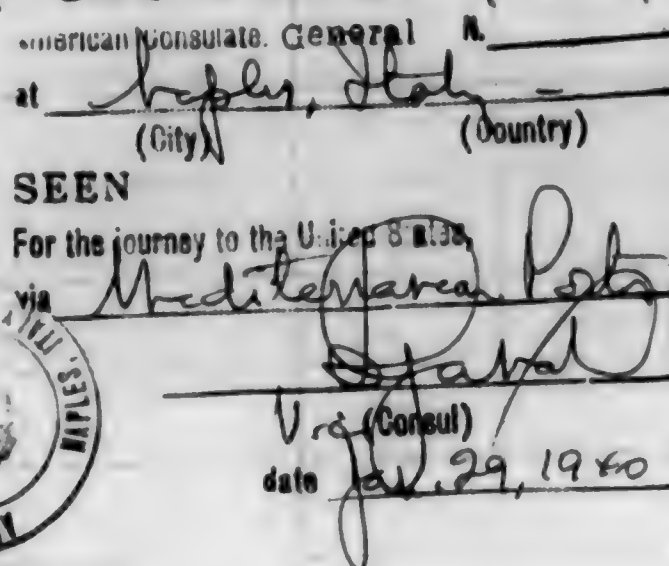 American Consulate. General N.
at Naples, Italy -
(City) (Country)
SEEN
For the journey to the United States,
via Mediterranean Ports
Vice (Consul)
date Jan. 29, 1940
NAPLES, ITALY